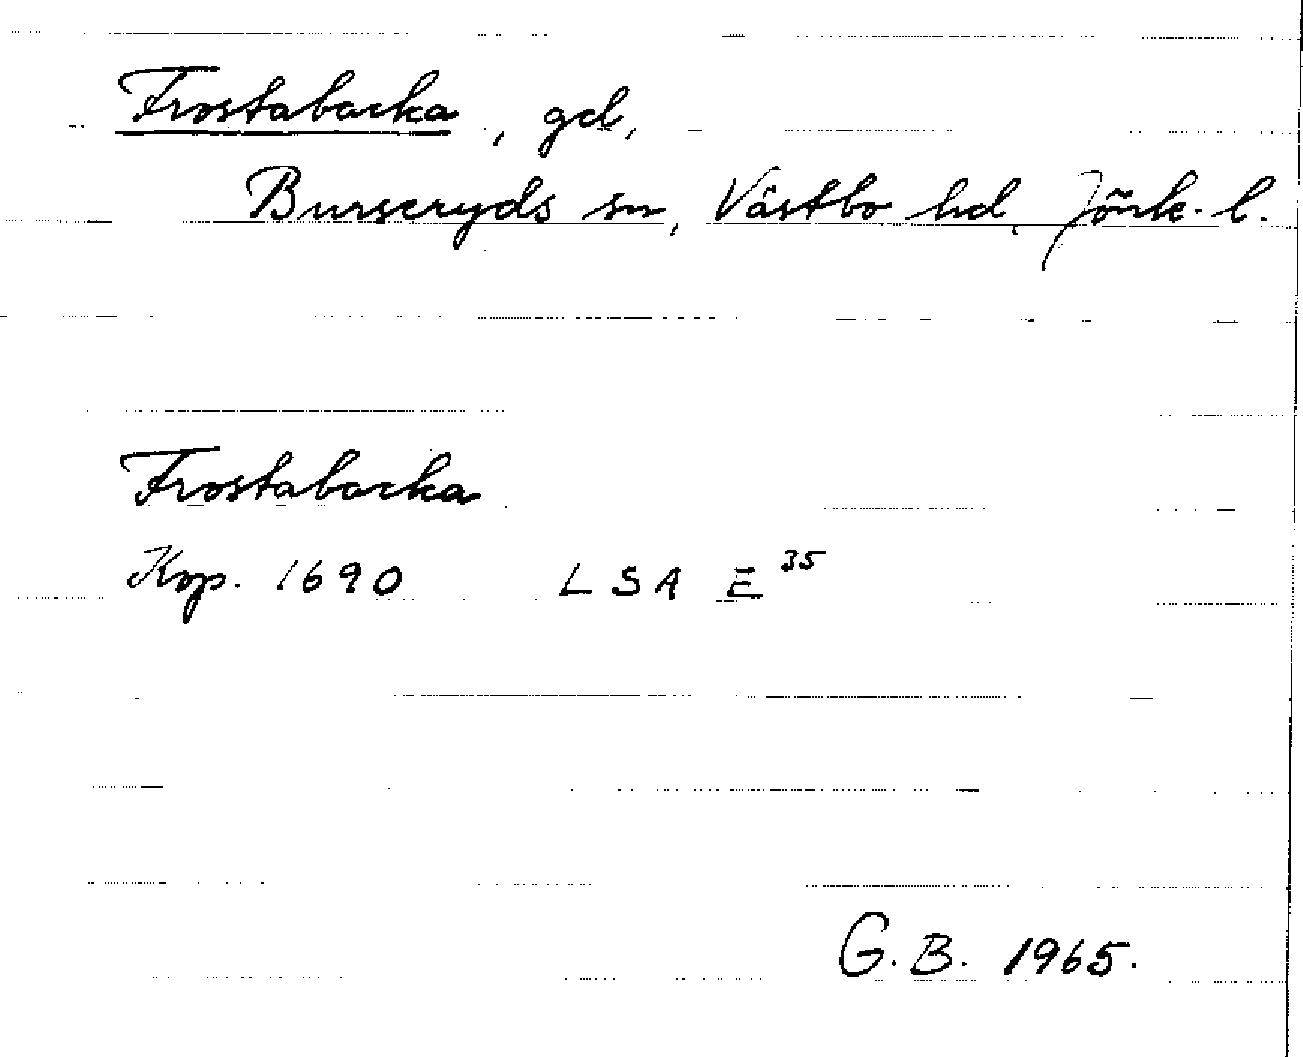 Frostabacka, gd,
Burseryds sn, Västbo hd, Jönk. l.
Frostabacka
Kop. 1690 LSA E 35
G. B. 1965.